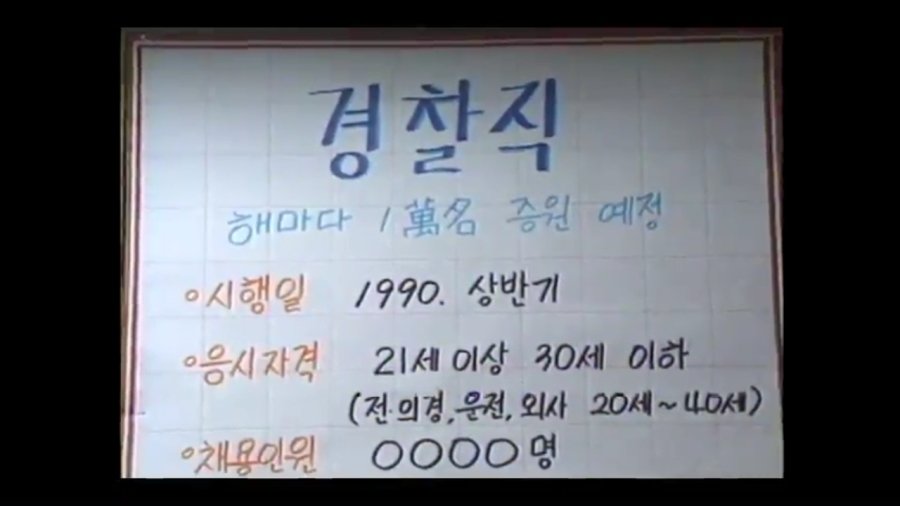 경찰직
해마다 1萬名 증원 예정
○시행일 1990. 상반기
○응시자격 21세 이상 30세 이하
(전·의경, 운전, 외사 20세~40세)
○채용인원 ○○○○명